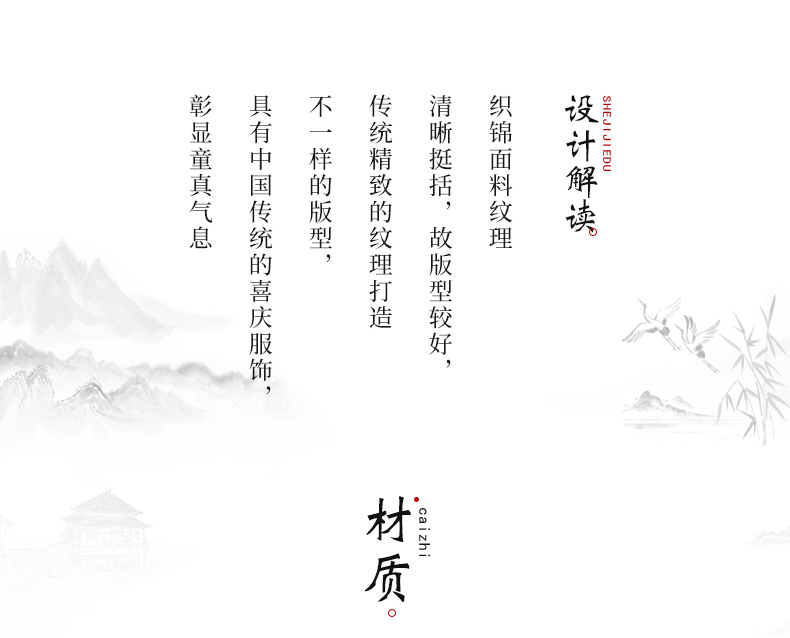 设计解读
SHEJIJIEDU
织锦面料纹理
清晰挺括，故版型较好，
传统精致的纹理打造
不一样的版型，
具有中国传统的喜庆服饰，
彰显童真气息
材质
caizhi